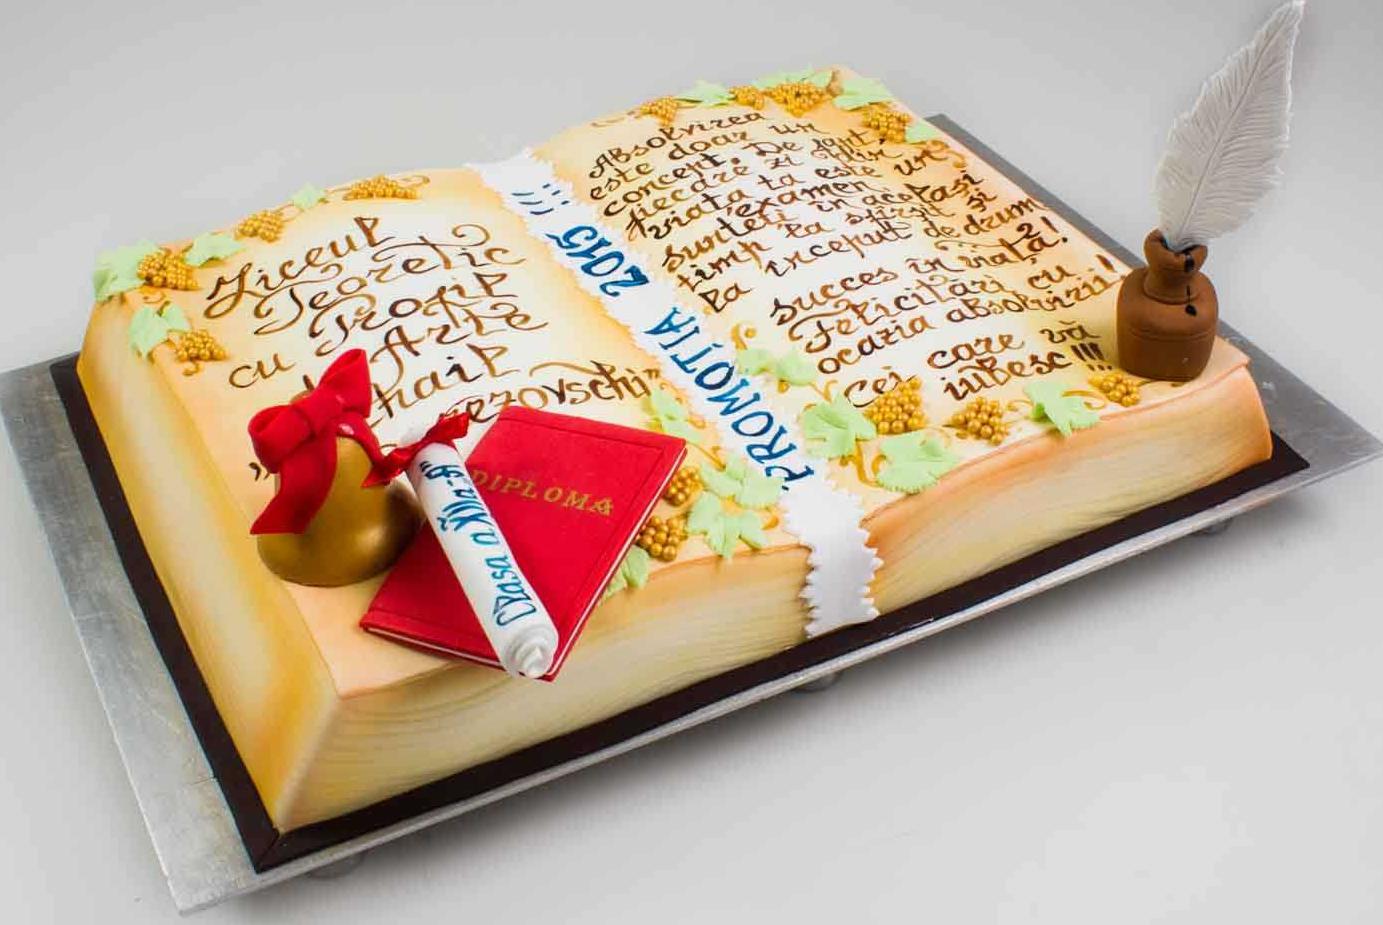 Liceul
Teoretic
cu Profil
Arte
hail
rezovschi"
DIPLOMA
Clasa a XII a "B"
PROMOȚIA 2015 !!!
Absolvirea
este doar un
concept. De fapt
fiecare zi din
viata ta este un
examen,
sunteți în același
timp la sfîrșit și
la început de drum!
succes în viață!
Felicitări cu
ocazia absolvirii!
cei care vă
iubesc !!!